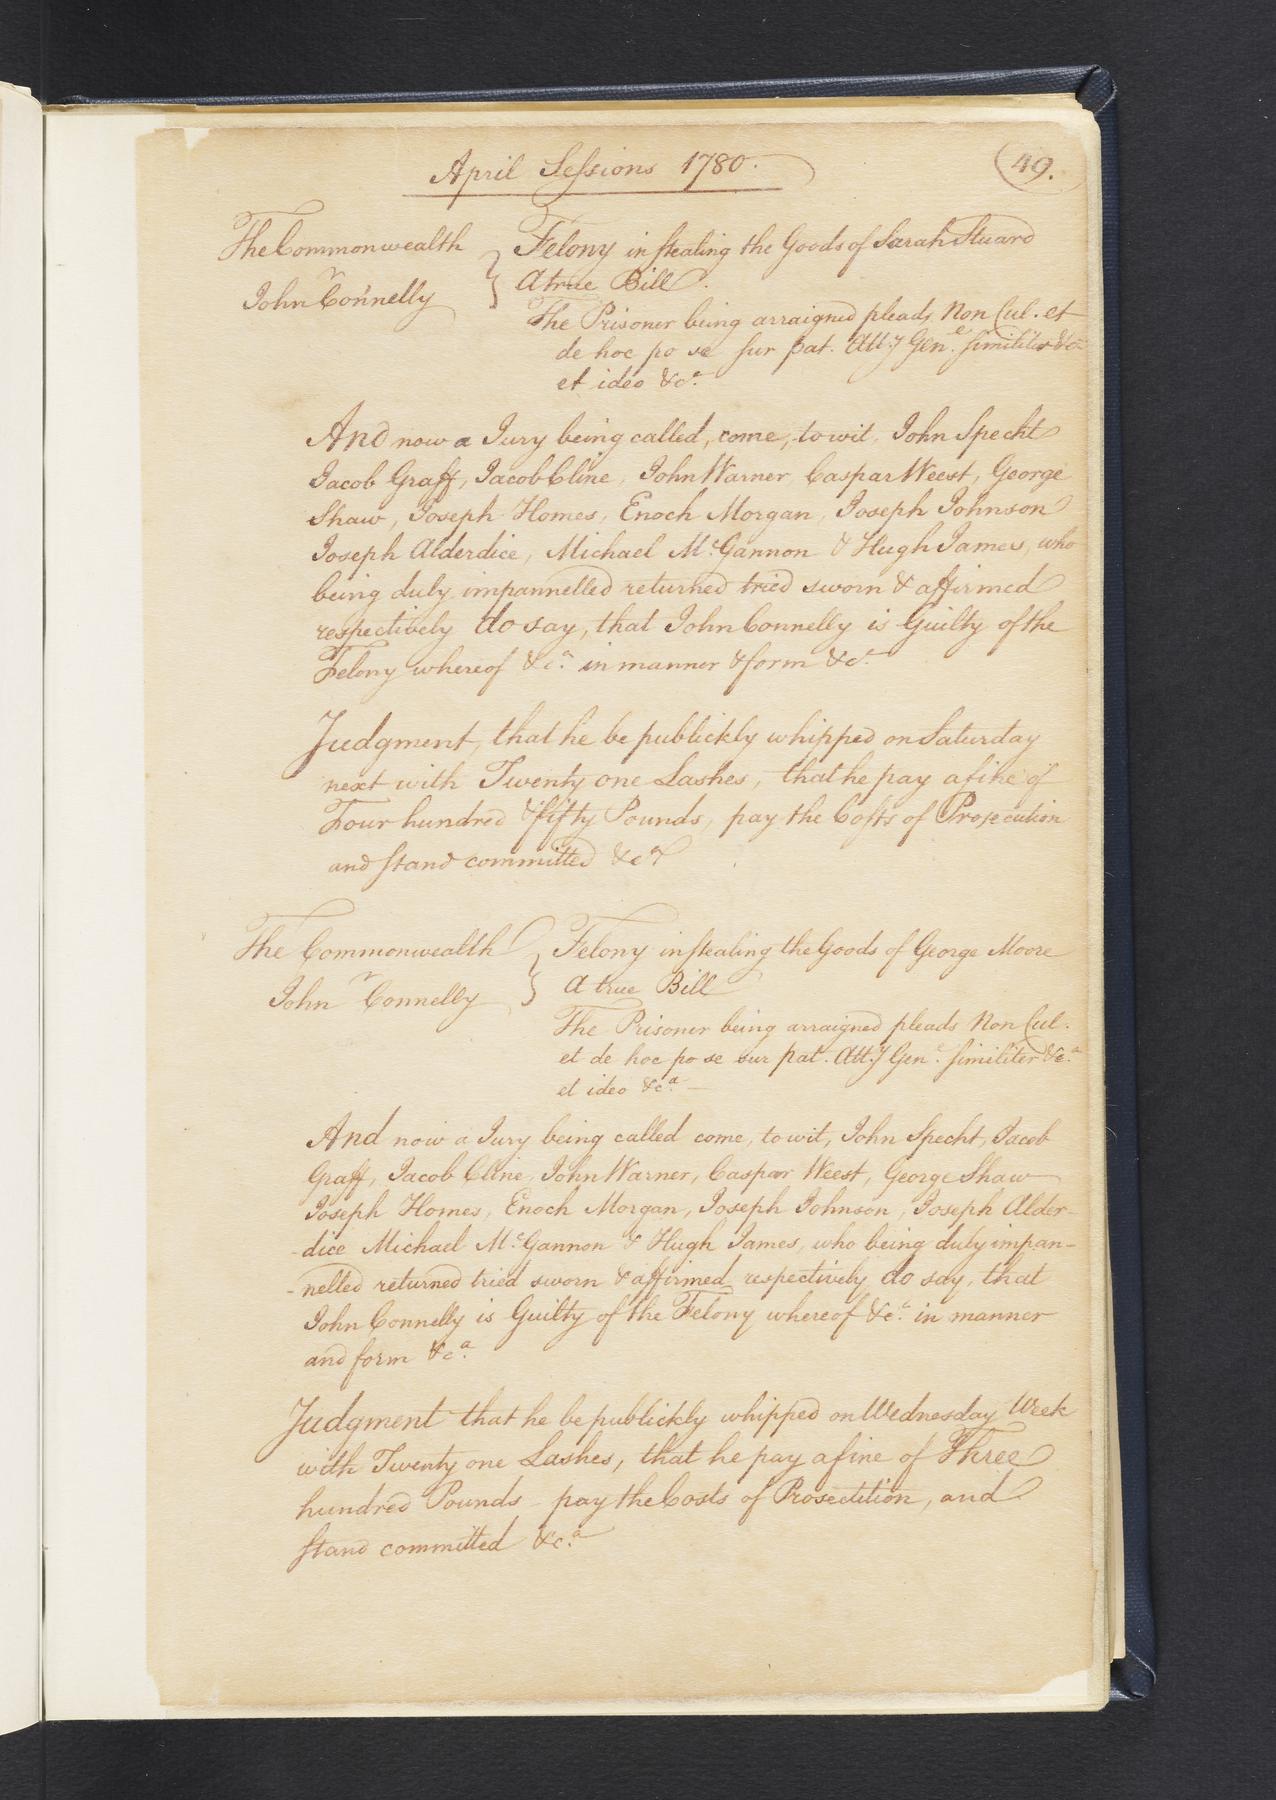 April Sessions 1780.
49.
The Commonwealth
vr
John Connelly
Felony in stealing the Goods of Sarah Stuard
A true Bill.
The Prisoner being arraigned pleads Non Cul. et
de hoc po se sur pat. Att.y Gen.l similiter &c.a
et ideo &c.a
And now a Jury being called, come, to wit, John Specht
Jacob Graff, Jacob Cline, John Warner, Caspar Weest, George
Shaw, Joseph Homes, Enoch Morgan, Joseph Johnson
Joseph Alderdice, Michael Mc.Gannon & Hugh James, who
being duly impannelled returned tried sworn & affirmed
respectively do say, that John Connelly is Guilty of the
Felony whereof &c.a in manner & form &c.a
Judgment, that he be publickly whipped on Saturday
next with Twenty one Lashes, that he pay a fine of
Four hundred & fifty Pounds, pay the Costs of Prosecution
and stand committed &c.a
The Commonwealth
vr
John Connelly
Felony in stealing the Goods of George Moore
A true Bill
The Prisoner being arraigned pleads Non Cul.
et de hoc po se sur pat. Att.y Gen.l similiter &c.a
et ideo &c.a
And now a Jury being called come, to wit, John Specht, Jacob
Graff, Jacob Cline, John Warner, Caspar Weest, George Shaw
Joseph Homes, Enoch Morgan, Joseph Johnson, Joseph Alder-
-dice Michael Mc.Gannon & Hugh James, who being duly impan-
-nelled returned tried sworn & affirmed respectively do say, that
John Connelly is Guilty of the Felony whereof &c.a in manner
and form &c.a
Judgment that he be publickly whipped on Wednesday Week
with Twenty one Lashes, that he pay a fine of Three
hundred Pounds - pay the Costs of Prosecution, and
stand committed &c.a